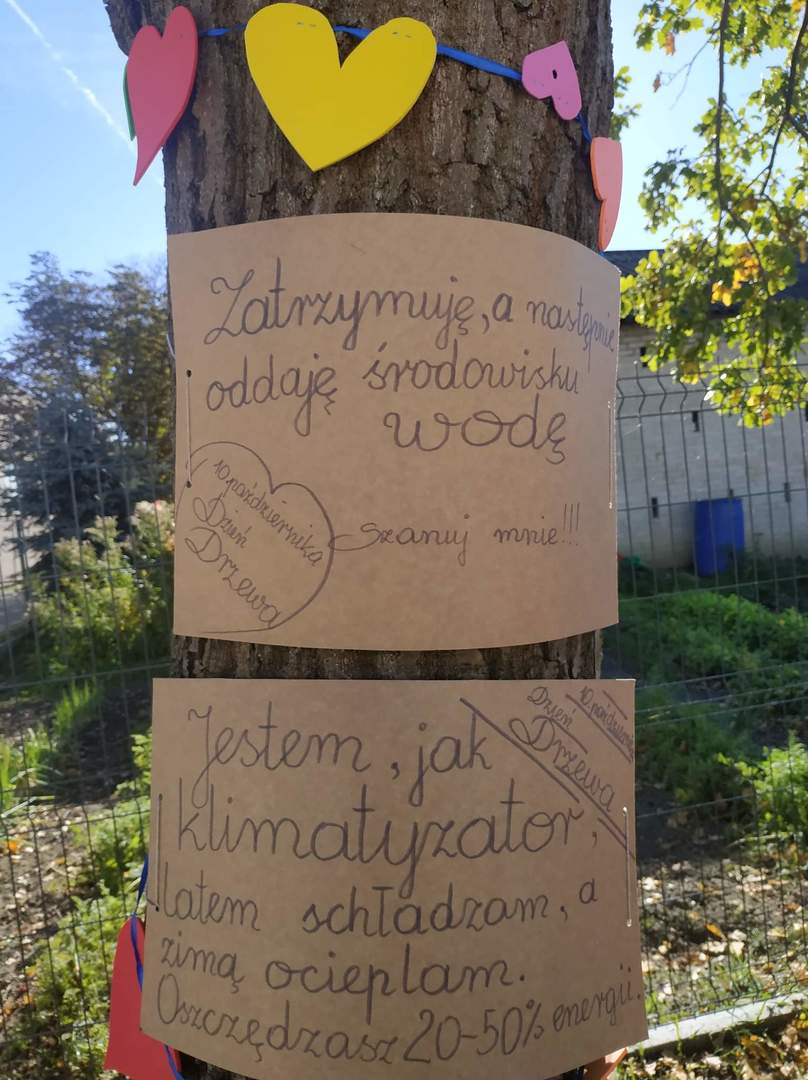 Zatrzymuję, a następnie
oddaję środowisku
wodę
10 października
Dzień
Drzewa
Szanuj mnie!!!
10 październik
Dzień
Drzewa
Jestem, jak
klimatyzator,
latem schładzam, a
zimą ocieplam.
Oszczędzasz 20-50% energii.